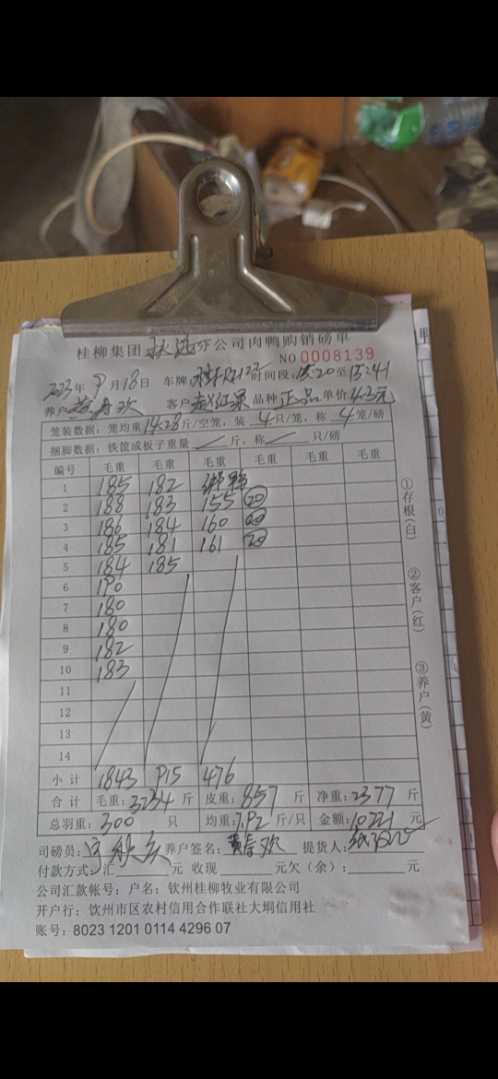 桂柳集团 分公司肉鸭购销磅单
NO 0008139
2023年9月18日 车牌: 时间段:15:20至15:41
养户: 欢 客户: 品种:正品 单价:4.3元
笼装数据: 笼均重14.28斤/空笼, 装 4只/笼, 称 4笼/磅
捆脚数据: 铁筐或板子重量 斤, 称 只/磅
编号 毛重 毛重 毛重 毛重 毛重 毛重
1 185 182
2 188 183 155 20
3 186 184 160 20
4 185 181 161 20
5 184 185
6 190
7 180
8 180
9 182
10 183
11
12
13
14
小计 1843 915 476
合计 毛重:3234斤 皮重:857斤 净重:2377斤
总羽重: 300 只 均重:7.92斤/只 金额:10221元
司磅员: 养户签名: 欢 提货人:
付款方式: 汇 元 收现 元欠(余): 元
公司汇款帐号: 户名: 钦州桂柳牧业有限公司
开户行: 钦州市区农村信用合作联社大垌信用社
账号: 8023 1201 0114 4296 07
①存根(白)
②客户(红)
③养户(黄)